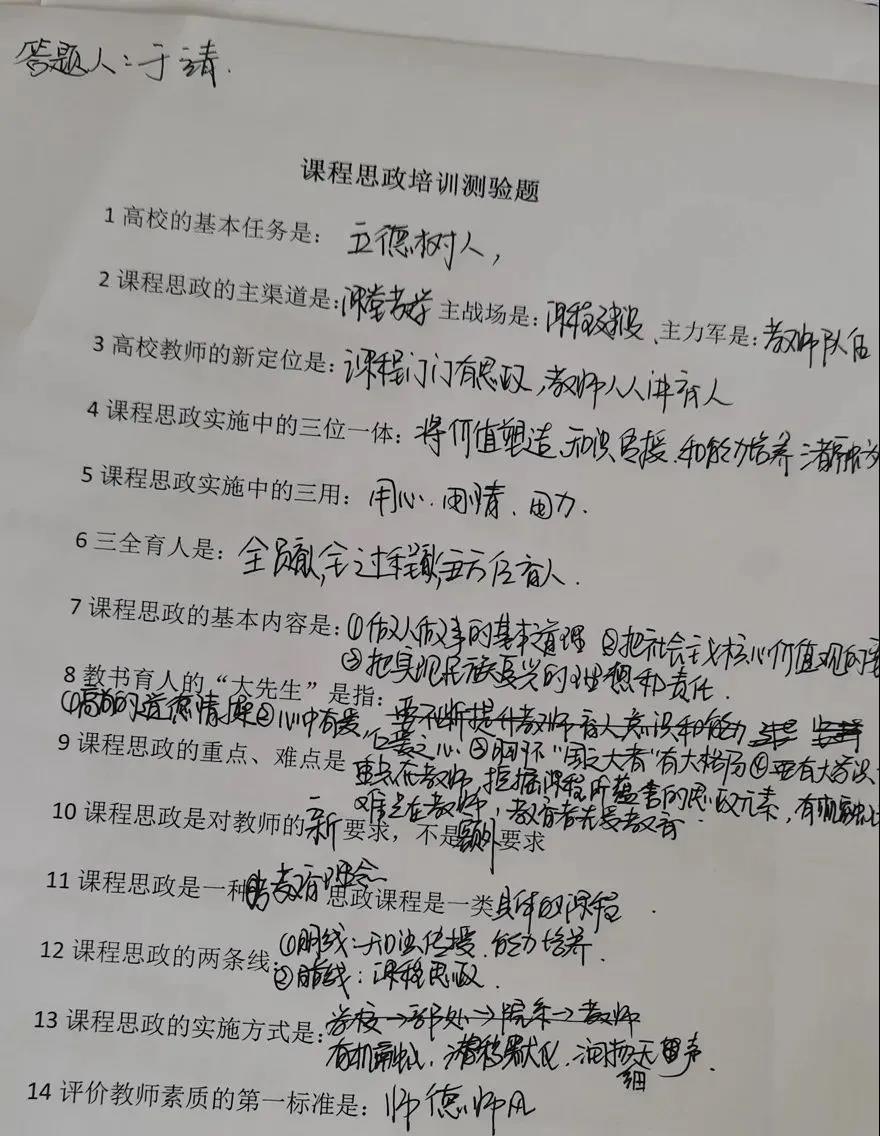 答题人:于靖.
课程思政培训测验题
1 高校的基本任务是: 立德树人,
2 课程思政的主渠道是:课堂教学 主战场是:课程建设、主力军是:教师队伍
3 高校教师的新定位是:课程门门有思政,教师人人讲育人
4 课程思政实施中的三位一体:将价值塑造、知识传授、和能力培养三者融为
5 课程思政实施中的三用: 用心、用情、用力.
6 三全育人是: 全员 全过程 全方位育人.
7 课程思政的基本内容是:①做人做事的基本道理 ②把社会主义核心价值观的
③把实现民族复兴的理想和责任.
8 教书育人的“大先生”是指: 要不断提升教师育人意识和能力
①高尚的道德情操②心中有爱,仁爱之心③胸怀“国之大者”有大格局④要有大
9 课程思政的重点、难点是 重点在教师,挖掘课程所蕴含的思政元素,有机融
难点在教师,教育者先受教育.
10 课程思政是对教师的新要求,不是额外要求
11 课程思政是一种 教育理念 思政课程是一类具体的课程.
12 课程思政的两条线:①明线:知识传授、能力培养.
②暗线:课程思政.
13 课程思政的实施方式是:学校→部处→院系→教师
有机融入,潜移默化,润物细无声.
14 评价教师素质的第一标准是: 师德师风